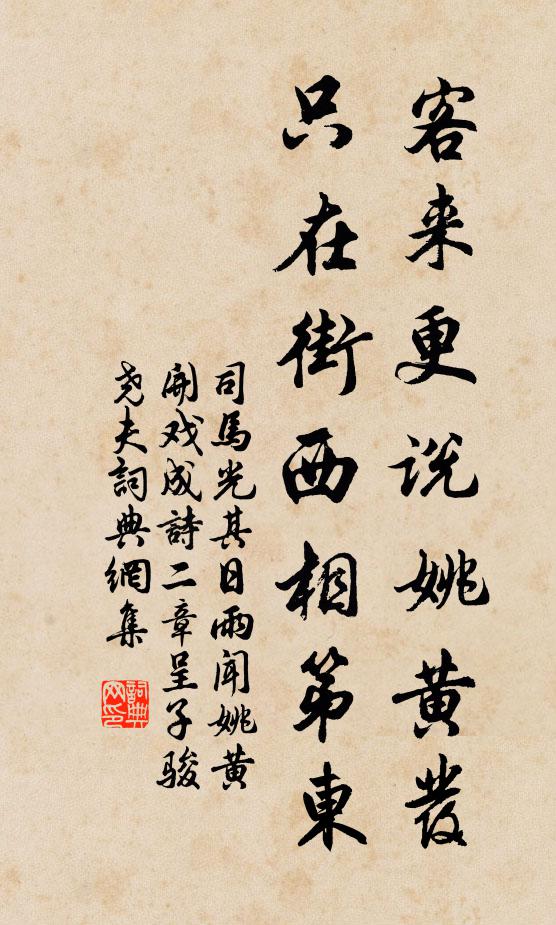 客来更说姚黄發
只在街西相第東
司馬光其日雨闻姚黄
開戏成詩二章呈子骏
尧夫詞典網集
詞典
网印